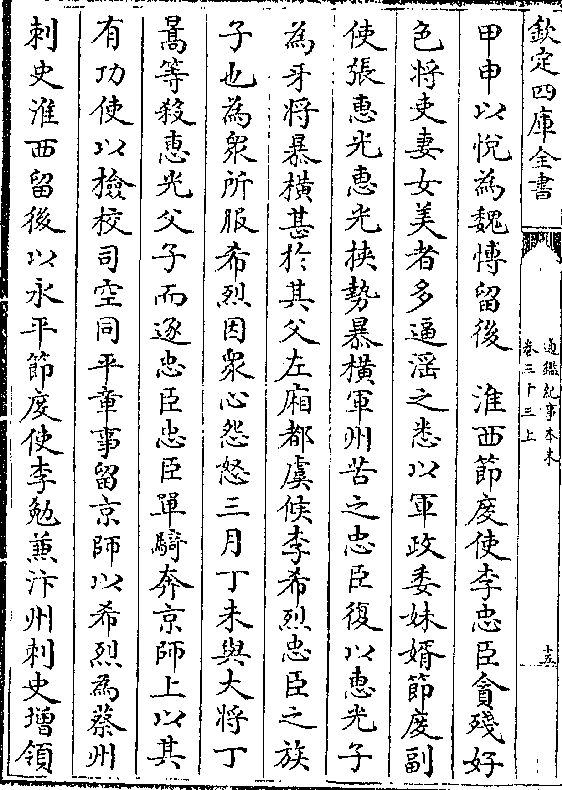 欽定四庫全書
通鑑紀事本末
卷三十三上
十五
甲申以悅為魏博留後　淮西節度使李忠臣貪殘好
色將吏妻女美者多逼滛之悉以軍政委妹婿節度副
使張惠光惠光挾勢暴橫軍州苦之忠臣復以惠光子
為牙將暴橫甚於其父左廂都虞候李希烈忠臣之族
子也為衆所服希烈因衆心怨怒三月丁未與大將丁
暠等殺惠光父子而逐忠臣忠臣單騎奔京師上以其
有功使以檢校司空同平章事留京師以希烈為蔡州
刺史淮西留後以永平節度使李勉兼汴州刺史增領